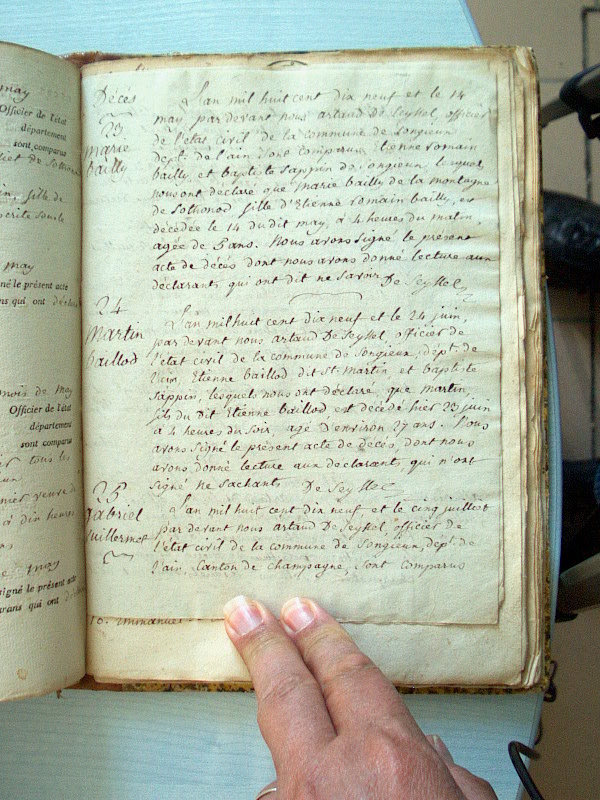 may
Officier de l'état
département
sont comparus
fille de
may
né le présent acte
ns qui ont
mois de may
Officier de l'état
département
sont comparus
tous les
à dix heures
may
signé le présent acte
arans qui ont
Décès
23
marie
bailly
L'an mil huit cent dix neuf et le 14
may par devant nous artaud De Seyssel, officier
de l'état civil de la commune de Songieux
dept. de l'ain sont comparus Etienne romain
bailly, et baptiste Sappin de Songieux lesquels
nous ont déclaré que marie bailly de la montagne
de Sothonod fille d'Etienne romain bailly, est
décédée le 14 du dit may, à 4 heures du matin,
agée de 5 ans. Nous avons signé le présent
acte de décès dont nous avons donné lecture aux
déclarants qui ont dit ne savoir De Seyssel
24
Martin
baillod
L'an mil huit cent dix neuf et le 24 juin,
par devant nous artaud De Seyssel, officier de
l'état civil de la commune de Songieux, dépt. de
l'ain Etienne baillod dit St. Martin et baptiste
Sappin, lesquels nous ont déclaré que martin
fils du Dit Etienne baillod est décédé hier 23 juin
à 4 heures du soir, agé d'environ 27 ans. Nous
avons signé le présent acte de décès, dont nous
avons donné lecture aux déclarants qui n'ont
signé ne sachants De Seyssel
25
gabriel
guillermet
L'an mil huit cent dix neuf et le cinq juillet
par devant nous artaud De Seyssel, officier de
l'état civil de la commune de Songieux, dépt. de
l'ain, Canton de champagne, sont comparus
10. immanuel